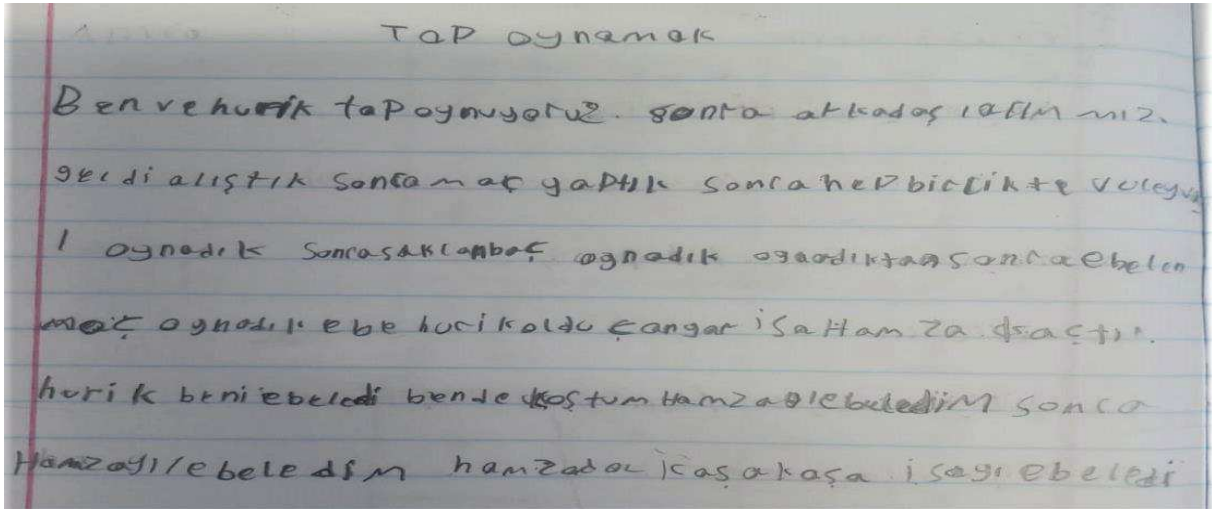 TOP oynamak
Ben ve hurik top oynuyoruz. sonra arkadaş larım mız.
geldi alıştık sonra maç yaptık sonra hep birlikte voleyv
l oynadık sonra saklanbaç oynadık oynadıktan sonra ebelen
meç oynadık ebe hurik oldu isa Hamza
hurik beni ebeledi bende koştum Hamza ebeledim sonra
Hamzayı ebeledim hamzada isayı ebeledi